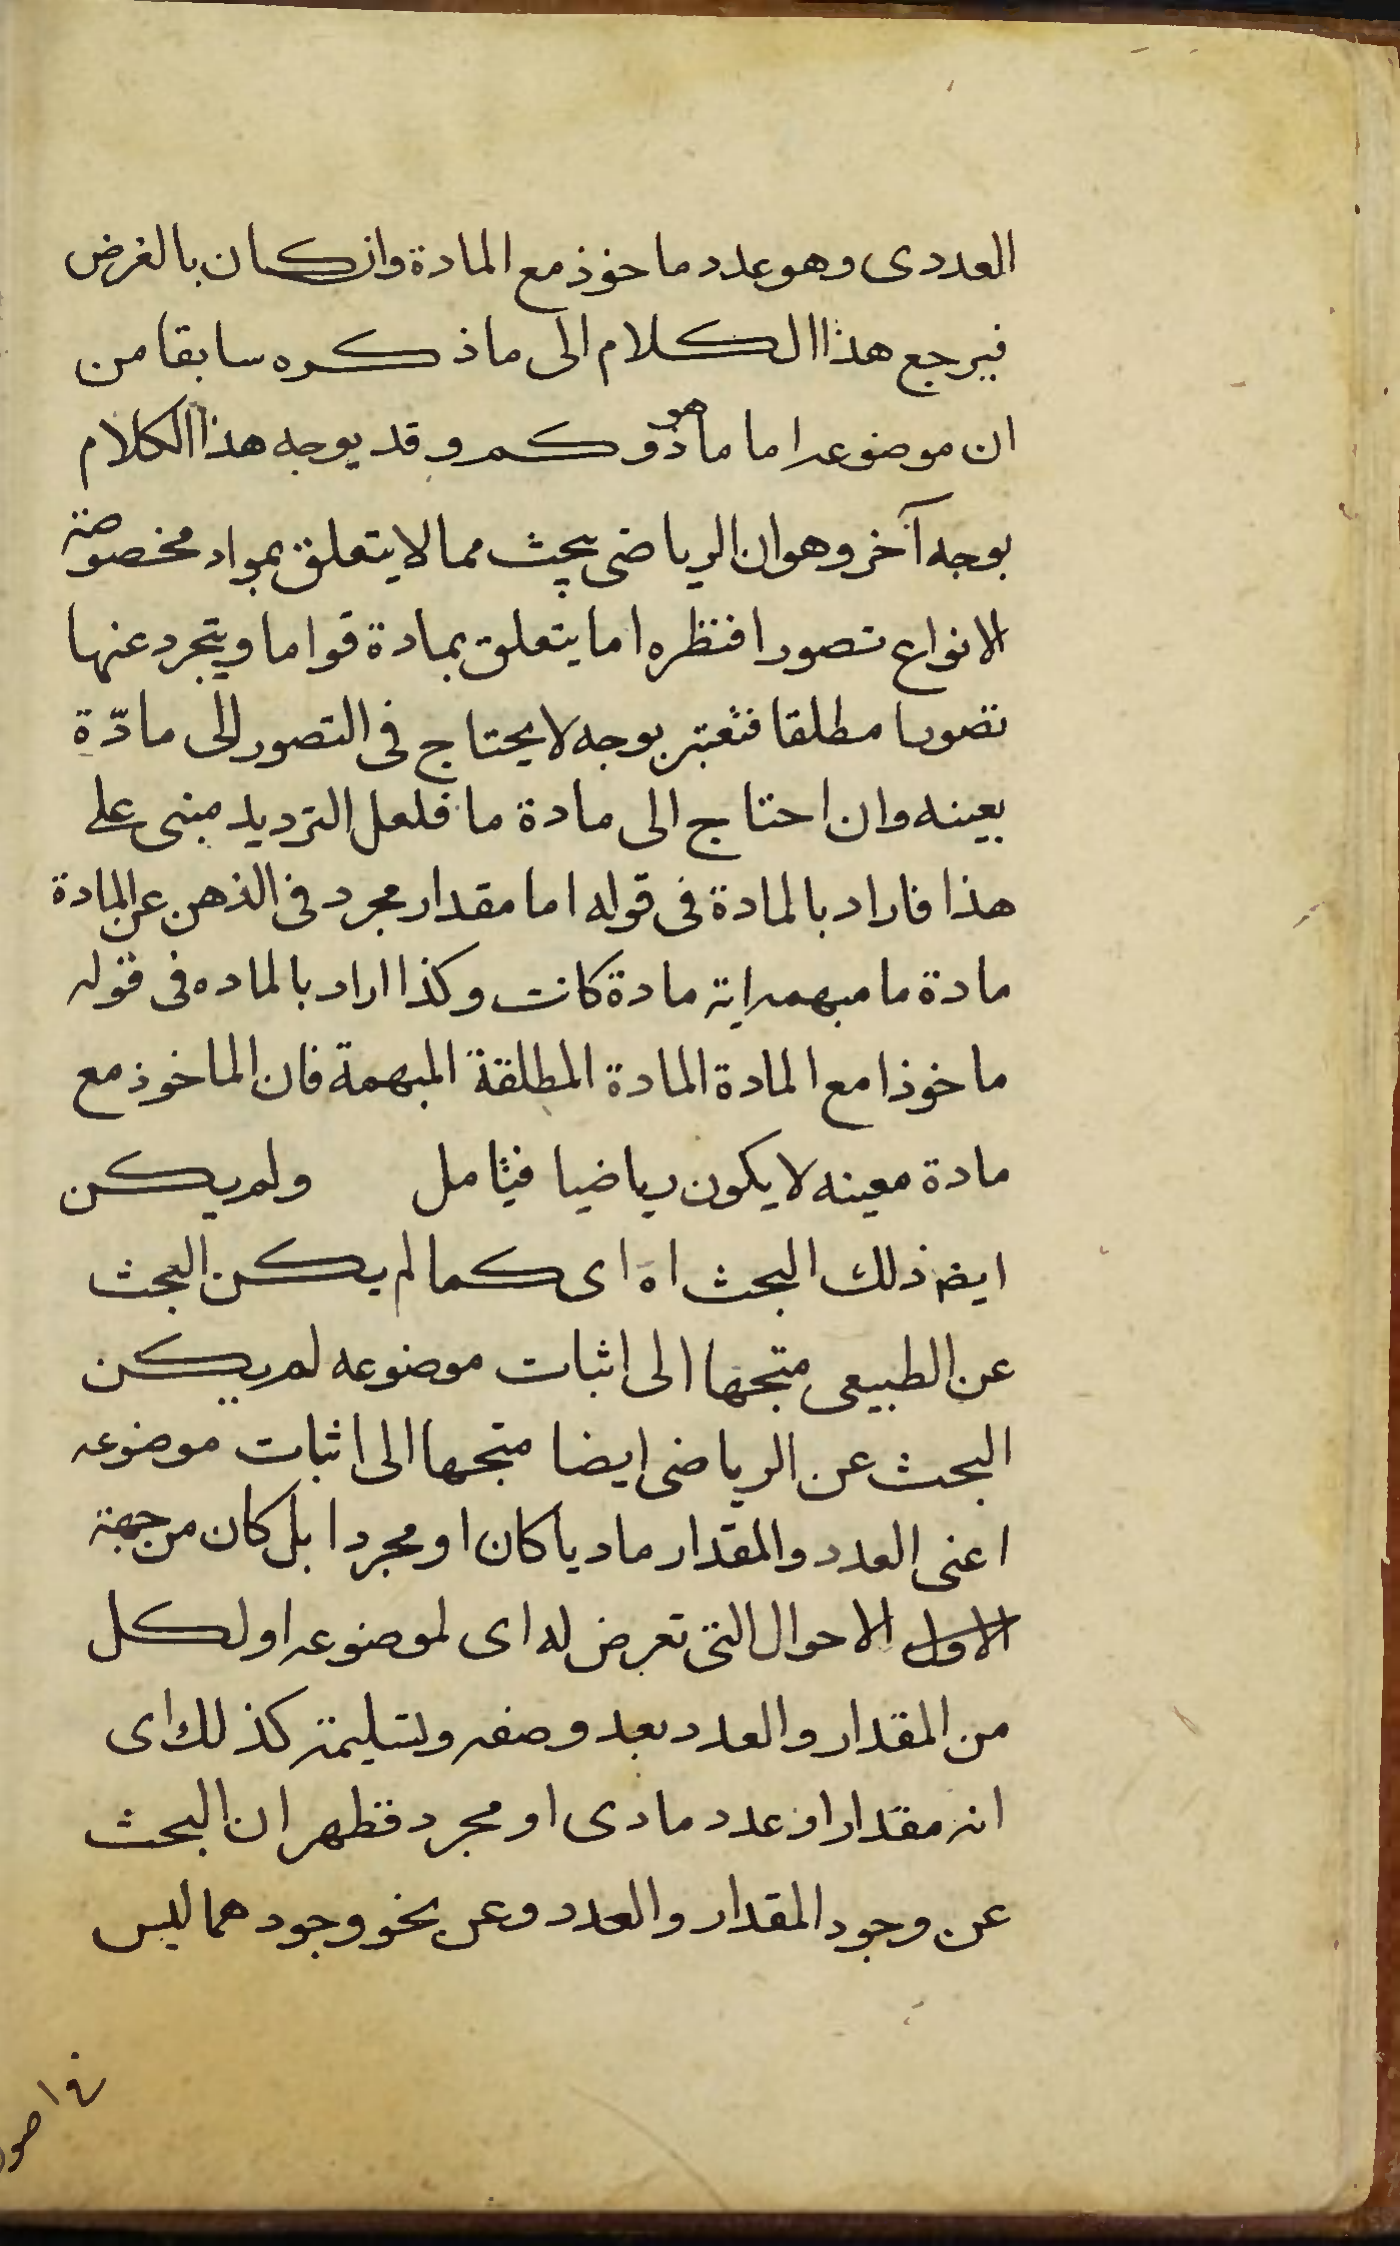 العددى وهو عدد ماخوذ مع المادة وان كان بالغرض
فيرجع هذا الكلام الى ما ذكره سابقا من
ان موضوعه اما ما هو ذو كم و قد يوجه هذا الكلام
بوجه آخر وهو ان الرياضى يبحث مما لا يتعلق بمواد مخصوصة
الانواع تصورا فنظره اما يتعلق بمادة قواما و يتجرد عنها
تصورا مطلقا فتعتبر بوجه لا يحتاج فى التصور الى مادّة
بعينه وان احتاج الى مادة ما فلعل الترديد مبنى على
هذا فاراد بالمادة فى قوله اما مقدار مجرد فى الذهن عن المادة
مادة ما مبهمه اية مادة كانت وكذا اراد بالماده فى قوله
ماخوذا مع المادة المادة المطلقة المبهمة فان الماخوذ مع
مادة معينه لا يكون رياضيا فيتامل ولم يكن
ايضه ذلك البحث اه اى كما لم يكن البحث
عن الطبيعى متجها الى اثبات موضوعه لم يكن
البحث عن الرياضى ايضا متجها الى اثبات موضوعه
اعنى العدد والمقدار ماديا كان او مجردا بل كان من جهة
الاول الاحوال التى تعرض له اى لموضوعه او لكل
من المقدار والعدد بعد وصفه وتسليمة كذلك اى
انه مقدار او عدد مادى او مجرد فظهر ان البحث
عن وجود المقدار والعدد وعن نحو وجودهما ليس